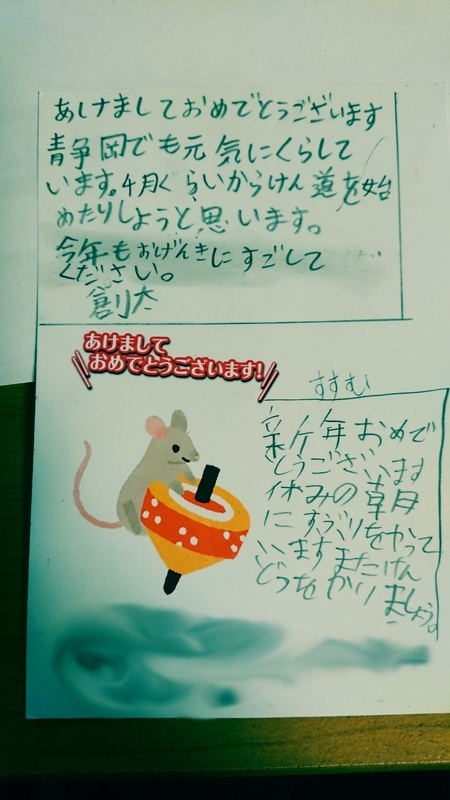 あけましておめでとうございます
青静岡でも元気にくらして
います。4月ぐらいからけん道を始
めたりしようと思います。
今年もおげんきにすごして
ください。
創太
あけまして
おめでとうございます!
すすむ
新年おめで
とうございます
休みの朝
にすぶりをやって
いますまたけん
どうをやりましょう。